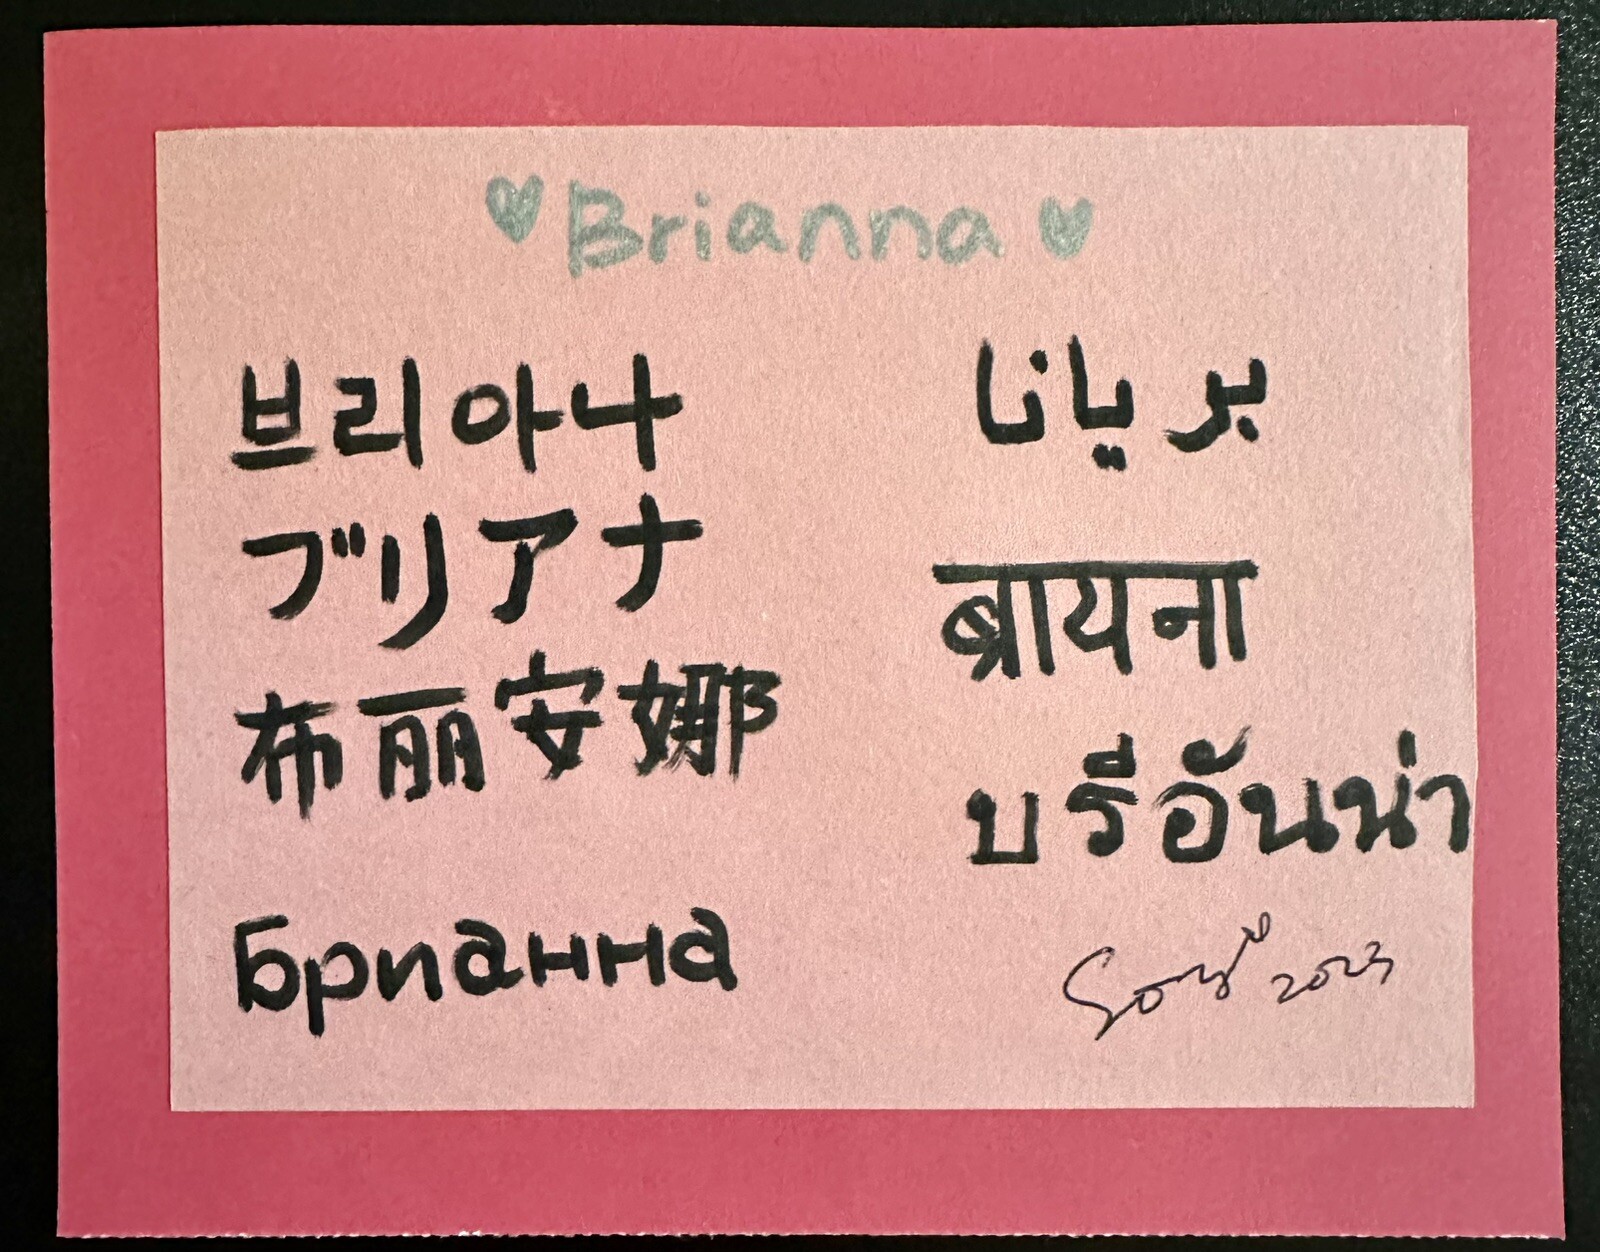 Brianna
브리아나
ブリアナ
布丽安娜
Брианна
بريانا
ब्रायना
บรีอันน่า
2023